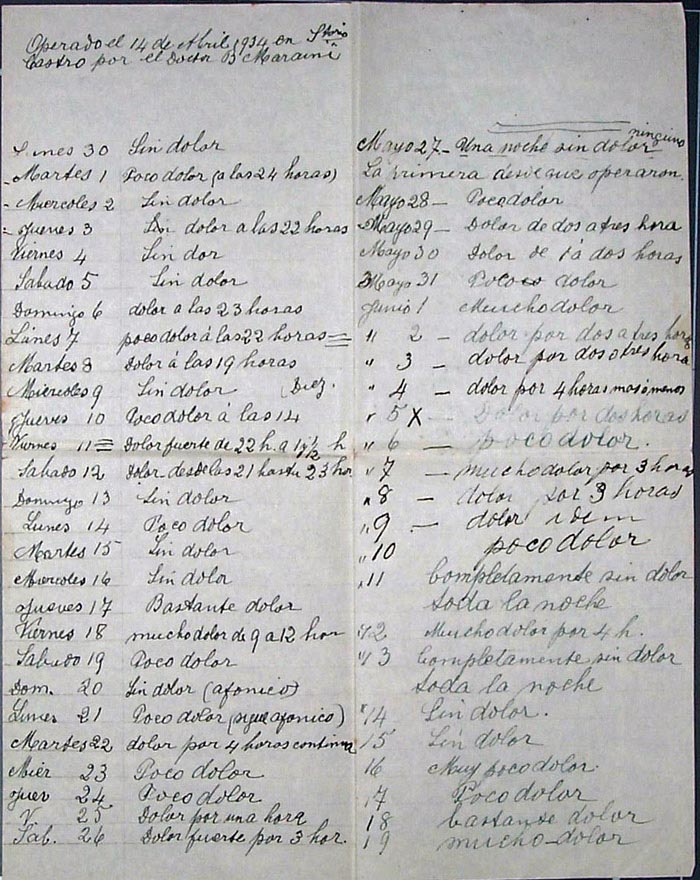 Operado el 14 de Abril 1934 en Strio
Castro por el Doctor B Maraini
Lunes 30 Sin dolor
- Martes 1 Poco dolor (a las 24 horas)
- Miercoles 2 Sin dolor
- Jueves 3 Sin dolor a las 22 horas
Viernes 4 Sin dor
Sabado 5 Sin dolor
Domingo 6 dolor a las 23 horas
Lunes 7 poco dolor á las 22 horas =
Martes 8 Dolor á las 19 horas
Miercoles 9 Sin dolor Diez.
Jueves 10 Poco dolor á las 14
Viernes 11 = Dolor fuerte de 22 h. a 1 y ½ h
Sabado 12 Dolor desde las 21 hasta 23 hor
Domingo 13 Sin dolor
Lunes 14 Poco dolor
Martes 15 Sin dolor
Miercoles 16 Sin dolor
Jueves 17 Bastante dolor
Viernes 18 mucho dolor de 9 a 12 hor
Sabado 19 Poco dolor
Dom. 20 Sin dolor (afonico)
Lunes 21 Poco dolor (sigue afonico)
Martes 22 dolor por 4 horas continua
Mier 23 Poco dolor
Juev 24 Poco dolor
V. 25 Dolor por una hora
Sab. 26 Dolor fuerte por 3 hor.
ninguno
Mayo 27 - Una noche sin dolor
La primera desde que operaron.
Mayo 28 - Poco dolor
Mayo 29 - Dolor de dos a tres hora
Mayo 30 Dolor de 1 á dos horas
Mayo 31 Pococo dolor
Junio 1 Mucho dolor
" 2 - dolor por dos a tres hora
" 3 - dolor por dos o tres hora
" 4 - dolor por 4 horas mas o menos
" 5 X - Dolor por dos horas
" 6 - poco dolor.
" 7 - mucho dolor por 3 horas
" 8 - dolor por 3 horas
" 9 - dolor idem
" 10 poco dolor
" 11 Completamente sin dolor
toda la noche
" 12 Mucho dolor por 4 h.
" 13 Completamente sin dolor
toda la noche
" 14 Sin dolor.
15 Sin dolor
16 Muy poco dolor
17 Poco dolor
18 bastante dolor
19 mucho dolor